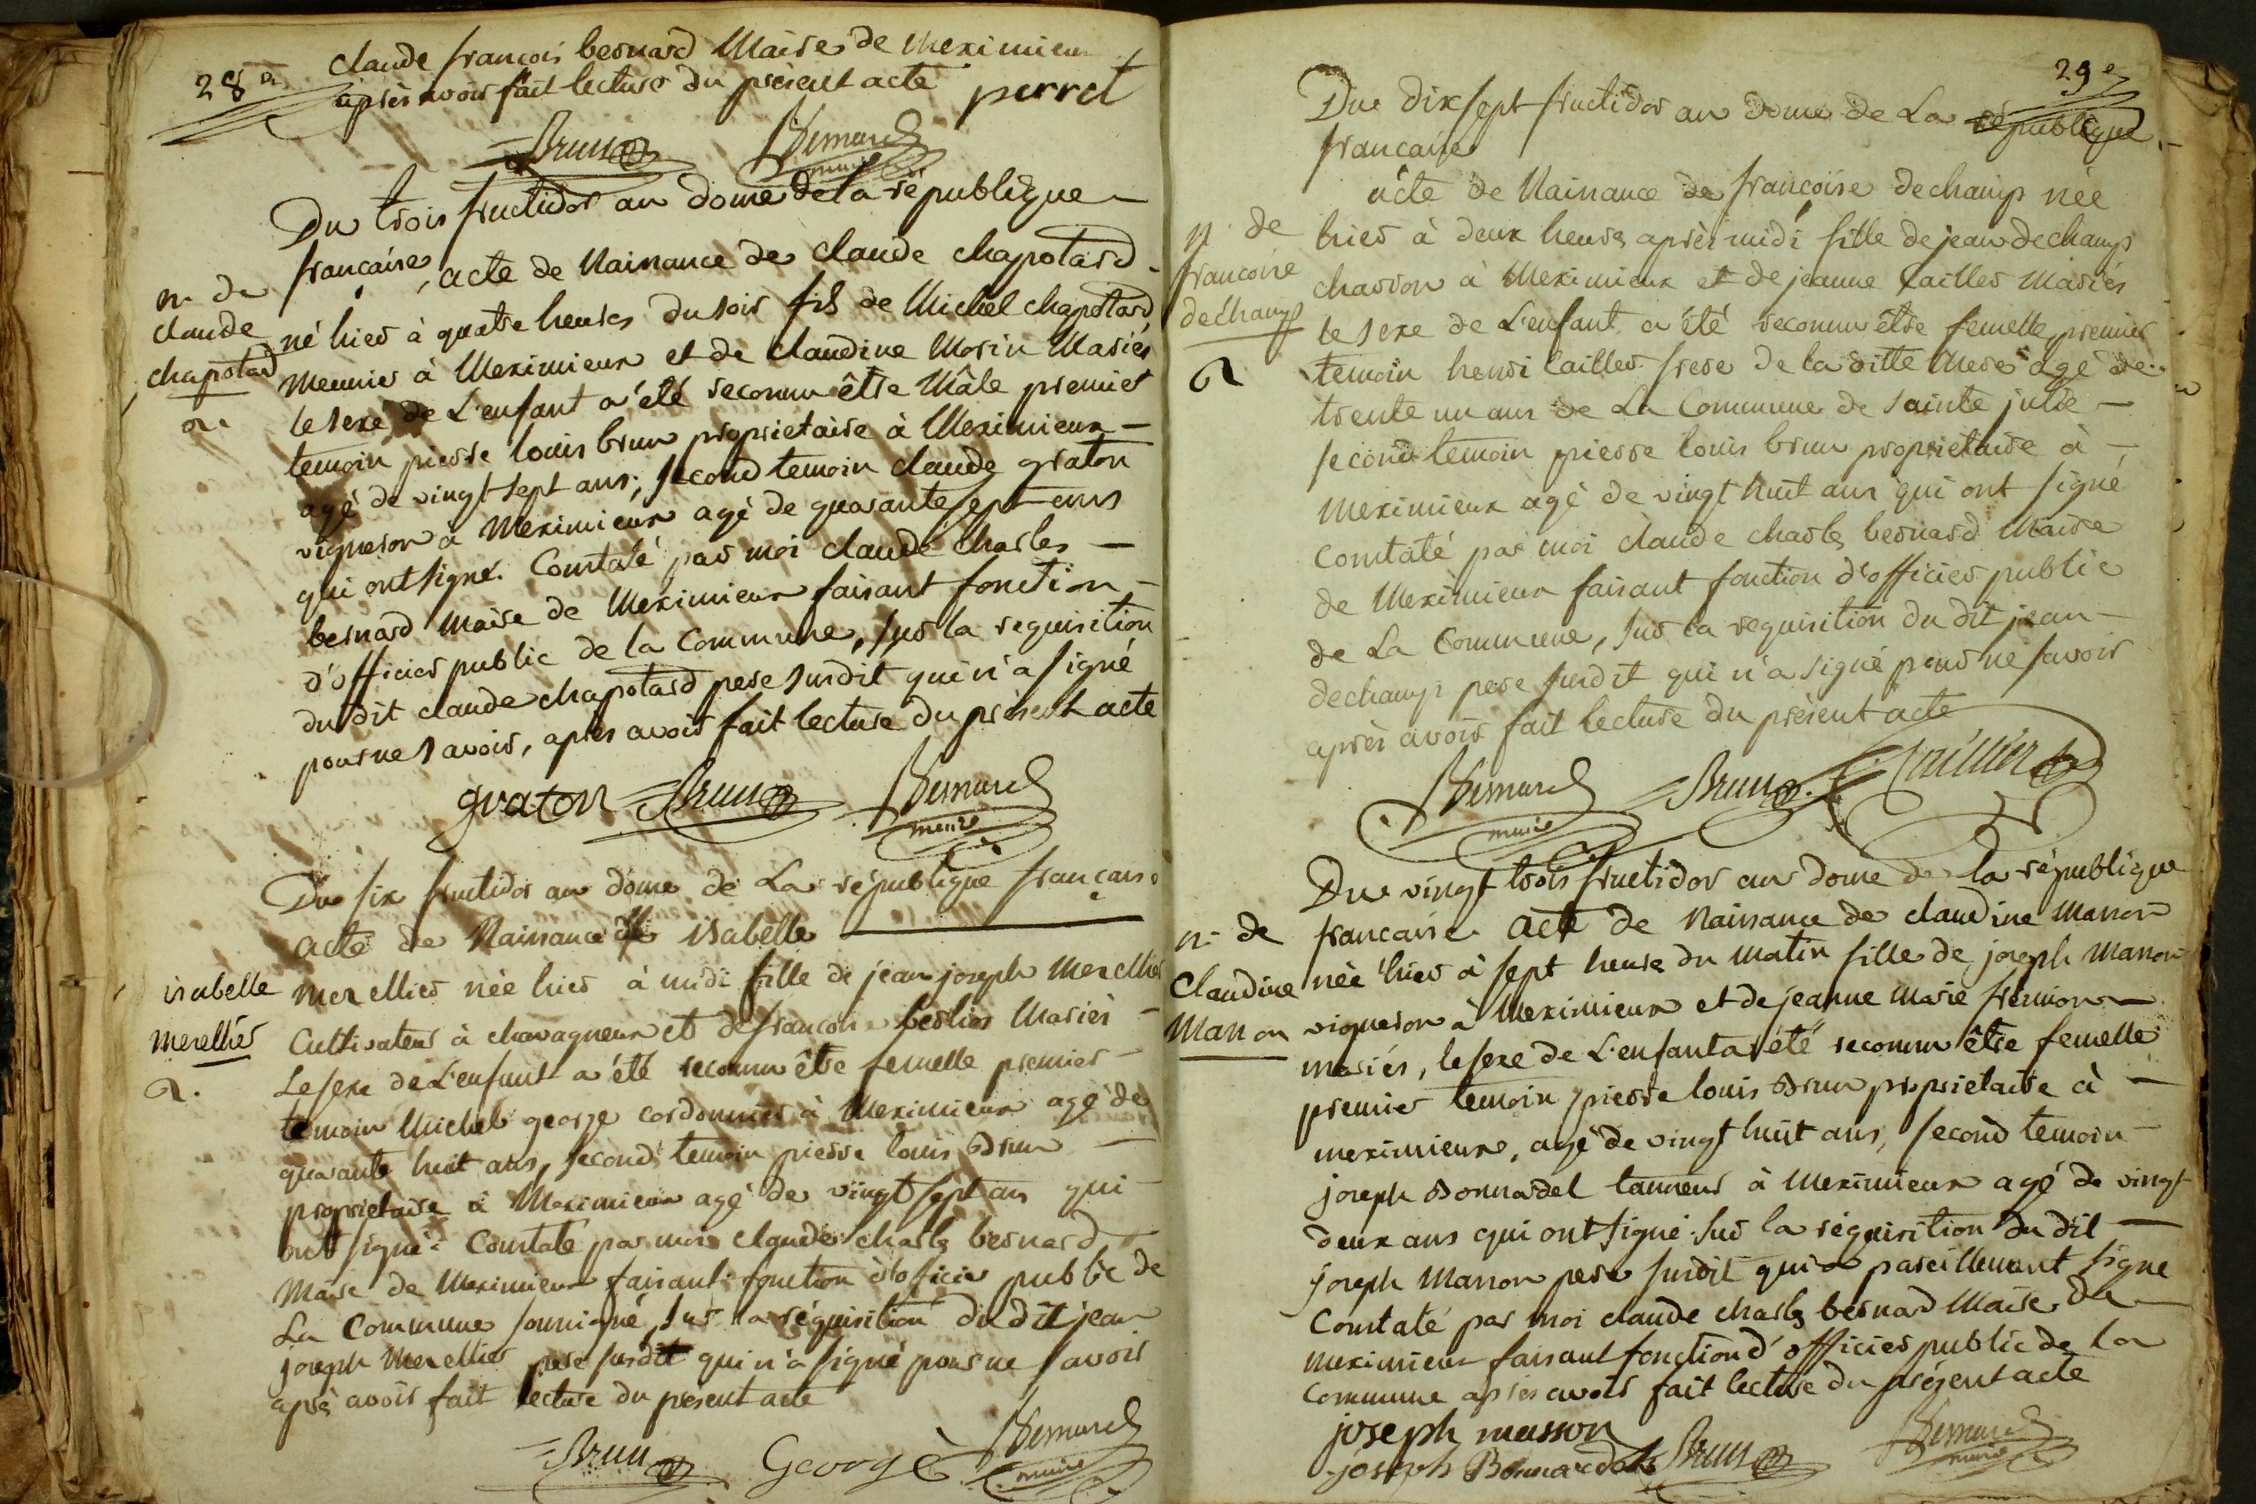 28e
claude françois bernard Maire de Meximieux
après avoir fait lecture du présent acte perret
Brun Bernard
maire
Du trois fructidor an douze de la république
française, acte de Naissance de claude chapotard
n. de
claude
chapotard
né hier à quatre heures du soir fils de Michel chapotard
meunier à Meximieux et de claudine Morin Mariés
le sexe de L'enfant a été reconnu être Mâle premier
temoin pierre louis brun proprietaire à Meximieux
agé de vingt sept ans, second temoin claude graton
vigneron à Meximieux agé de quarante sept ans
qui ont signé. Constaté par moi claude charles
bernard Maire de Meximieux faisant fonction
d'officier public de la Commune, sur la requisition
du dit claude chapotard pere susdit qui n'a signé
pour ne savoir, après avoir fait lecture du présent acte
graton Brun Bernard
maire
Du six fructidor an douze de La république française
acte de Naissance de isabelle
isabelle
merellier
2.
Merellier née hier à midi fille de jean joseph Merellier
Cultivateur à chavagneux et de francoise berlion Mariés
Le sexe de L'enfant a été reconnu être femelle premier
temoin Michel george cordonnier à Meximieux agé de
quarante huit ans, second temoin pierre louis Brun
proprietaire à Meximieux agé de vingt sept ans qui
ont signé. Constaté par moi claude charles bernard
Maire de Meximieux faisant fonction d'officier public de
La Commune soussigné, sur la réquisition du dit jean
joseph Merellier pere susdit qui n'a signé pour ne savoir
après avoir fait lecture du present acte
Brun George Bernard
maire
29e
Du dix sept fructidor an douze de La république
francaise
acte de Naissance de françoise dechamp née
n. de
francoise
déchamp
2
hier à deux heures après midi fille de jean dechamp
charron à Meximieux et de jeanne cailler Mariés
le sexe de L'enfant a été reconnu être femelle premier
temoin henri cailler frere de la ditte Mere agé de
trente un ans de La Commune de sainte julie
second temoin pierre louis brun proprietaire à
Meximieux agé de vingt huit ans qui ont signé
Constaté par moi claude charles bernard Maire
de Meximieux faisant fonction d'officier public
de La Commune, sur la requisition du dit jean
dechamp pere susdit qui n'a signé pour ne savoir
après avoir fait lecture du présent acte
Bernard Brun Caillier
maire
Du vingt trois fructidor an douze de la république
francaise acte de Naissance de claudine Masson
n. de
Claudine
Masson
née hier à sept heures du Matin fille de joseph Masson
vigneron à Meximieux et de jeanne Marie fremion
mariés, le sexe de L'enfant a été reconnu être femelle
premier temoin pierre louis Brun proprietaire à
meximieux, agé de vingt huit ans, second temoin
joseph Bonnardel tanneur à Meximieux agé de vingt
deux ans qui ont signé. Sur la réquisition du dit
joseph Masson pere susdit qui a pareillement signé
Constaté par moi claude charles bernard Maire de
meximieux faisant fonction d'officier public de la
Commune après avoir fait lecture du présent acte
joseph masson
joseph Bonnardel Brun Bernard
maire